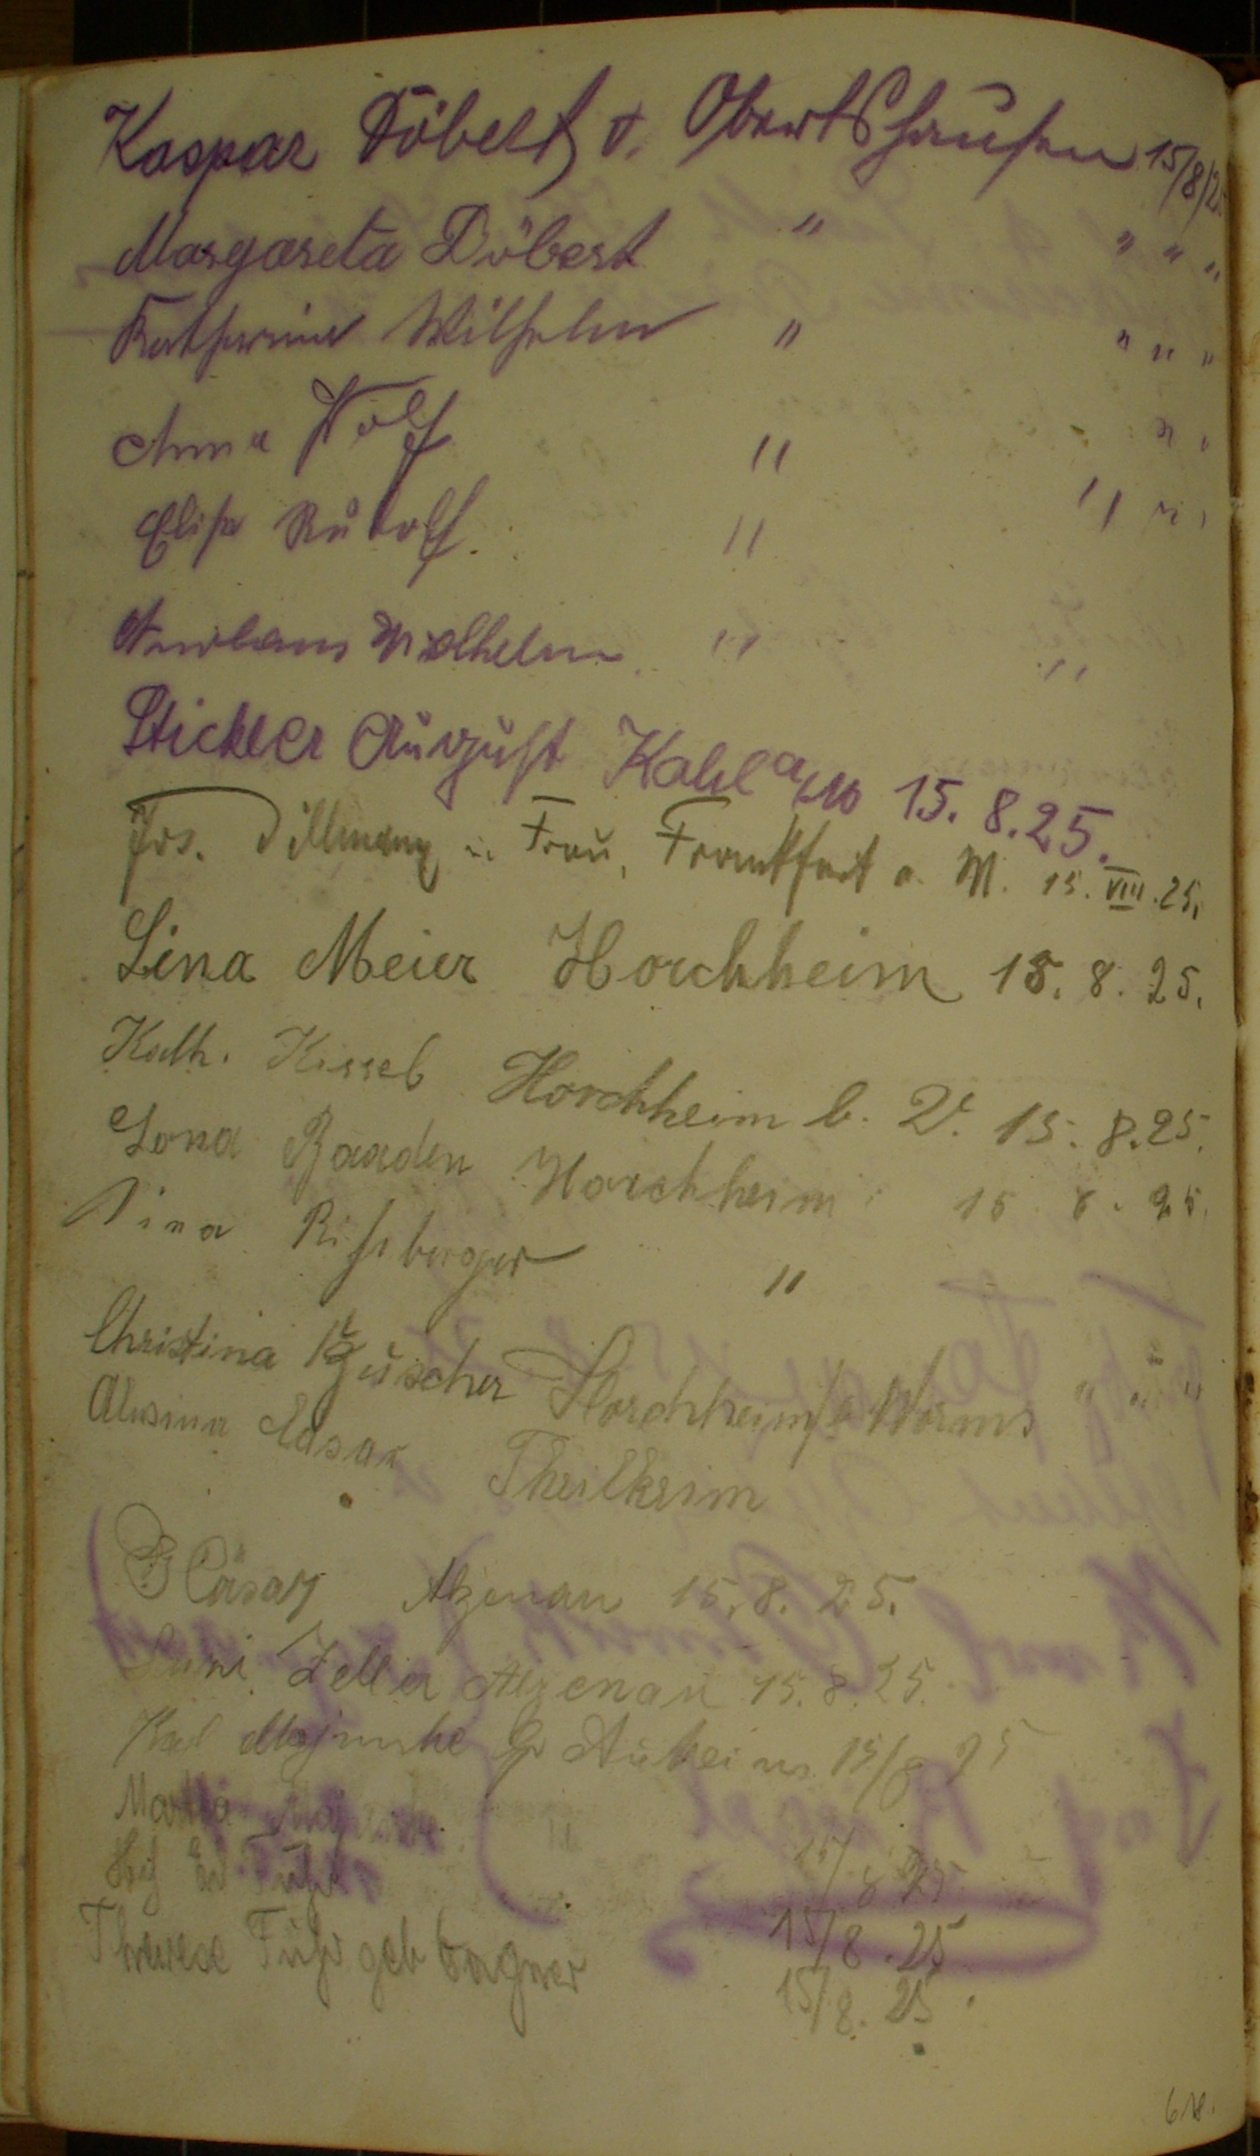 Kaspar Döbert v. Obertshausen 15/8/25
Margareta Döbert " " " "
Katharina Wilhelm " " " "
Anna Wolf " " "
Elisa Rudolf. " " " "
Wilhelm " "
Stickler August Kahl a/M 15.8.25.
Jos. Dillmann u. Frau, Frankfurt a. M. 15. VIII. 25.
Lina Meier Horchheim 15. 8. 25.
Kath. Kissel Horchheim b. W. 15. 8. 25.
Baaden Horchheim 15. 8. 25.
Rissberger "
Christina Horchheim b Worms " " "
B Cäsar Alzenau 15. 8. 25.
Zeller Alzenau 15. 8. 25.
Auheim 15/8 25
15/ 8 25
Führ 15/8. 25
Therese Führ geb Wagner 15/8. 25.
618.